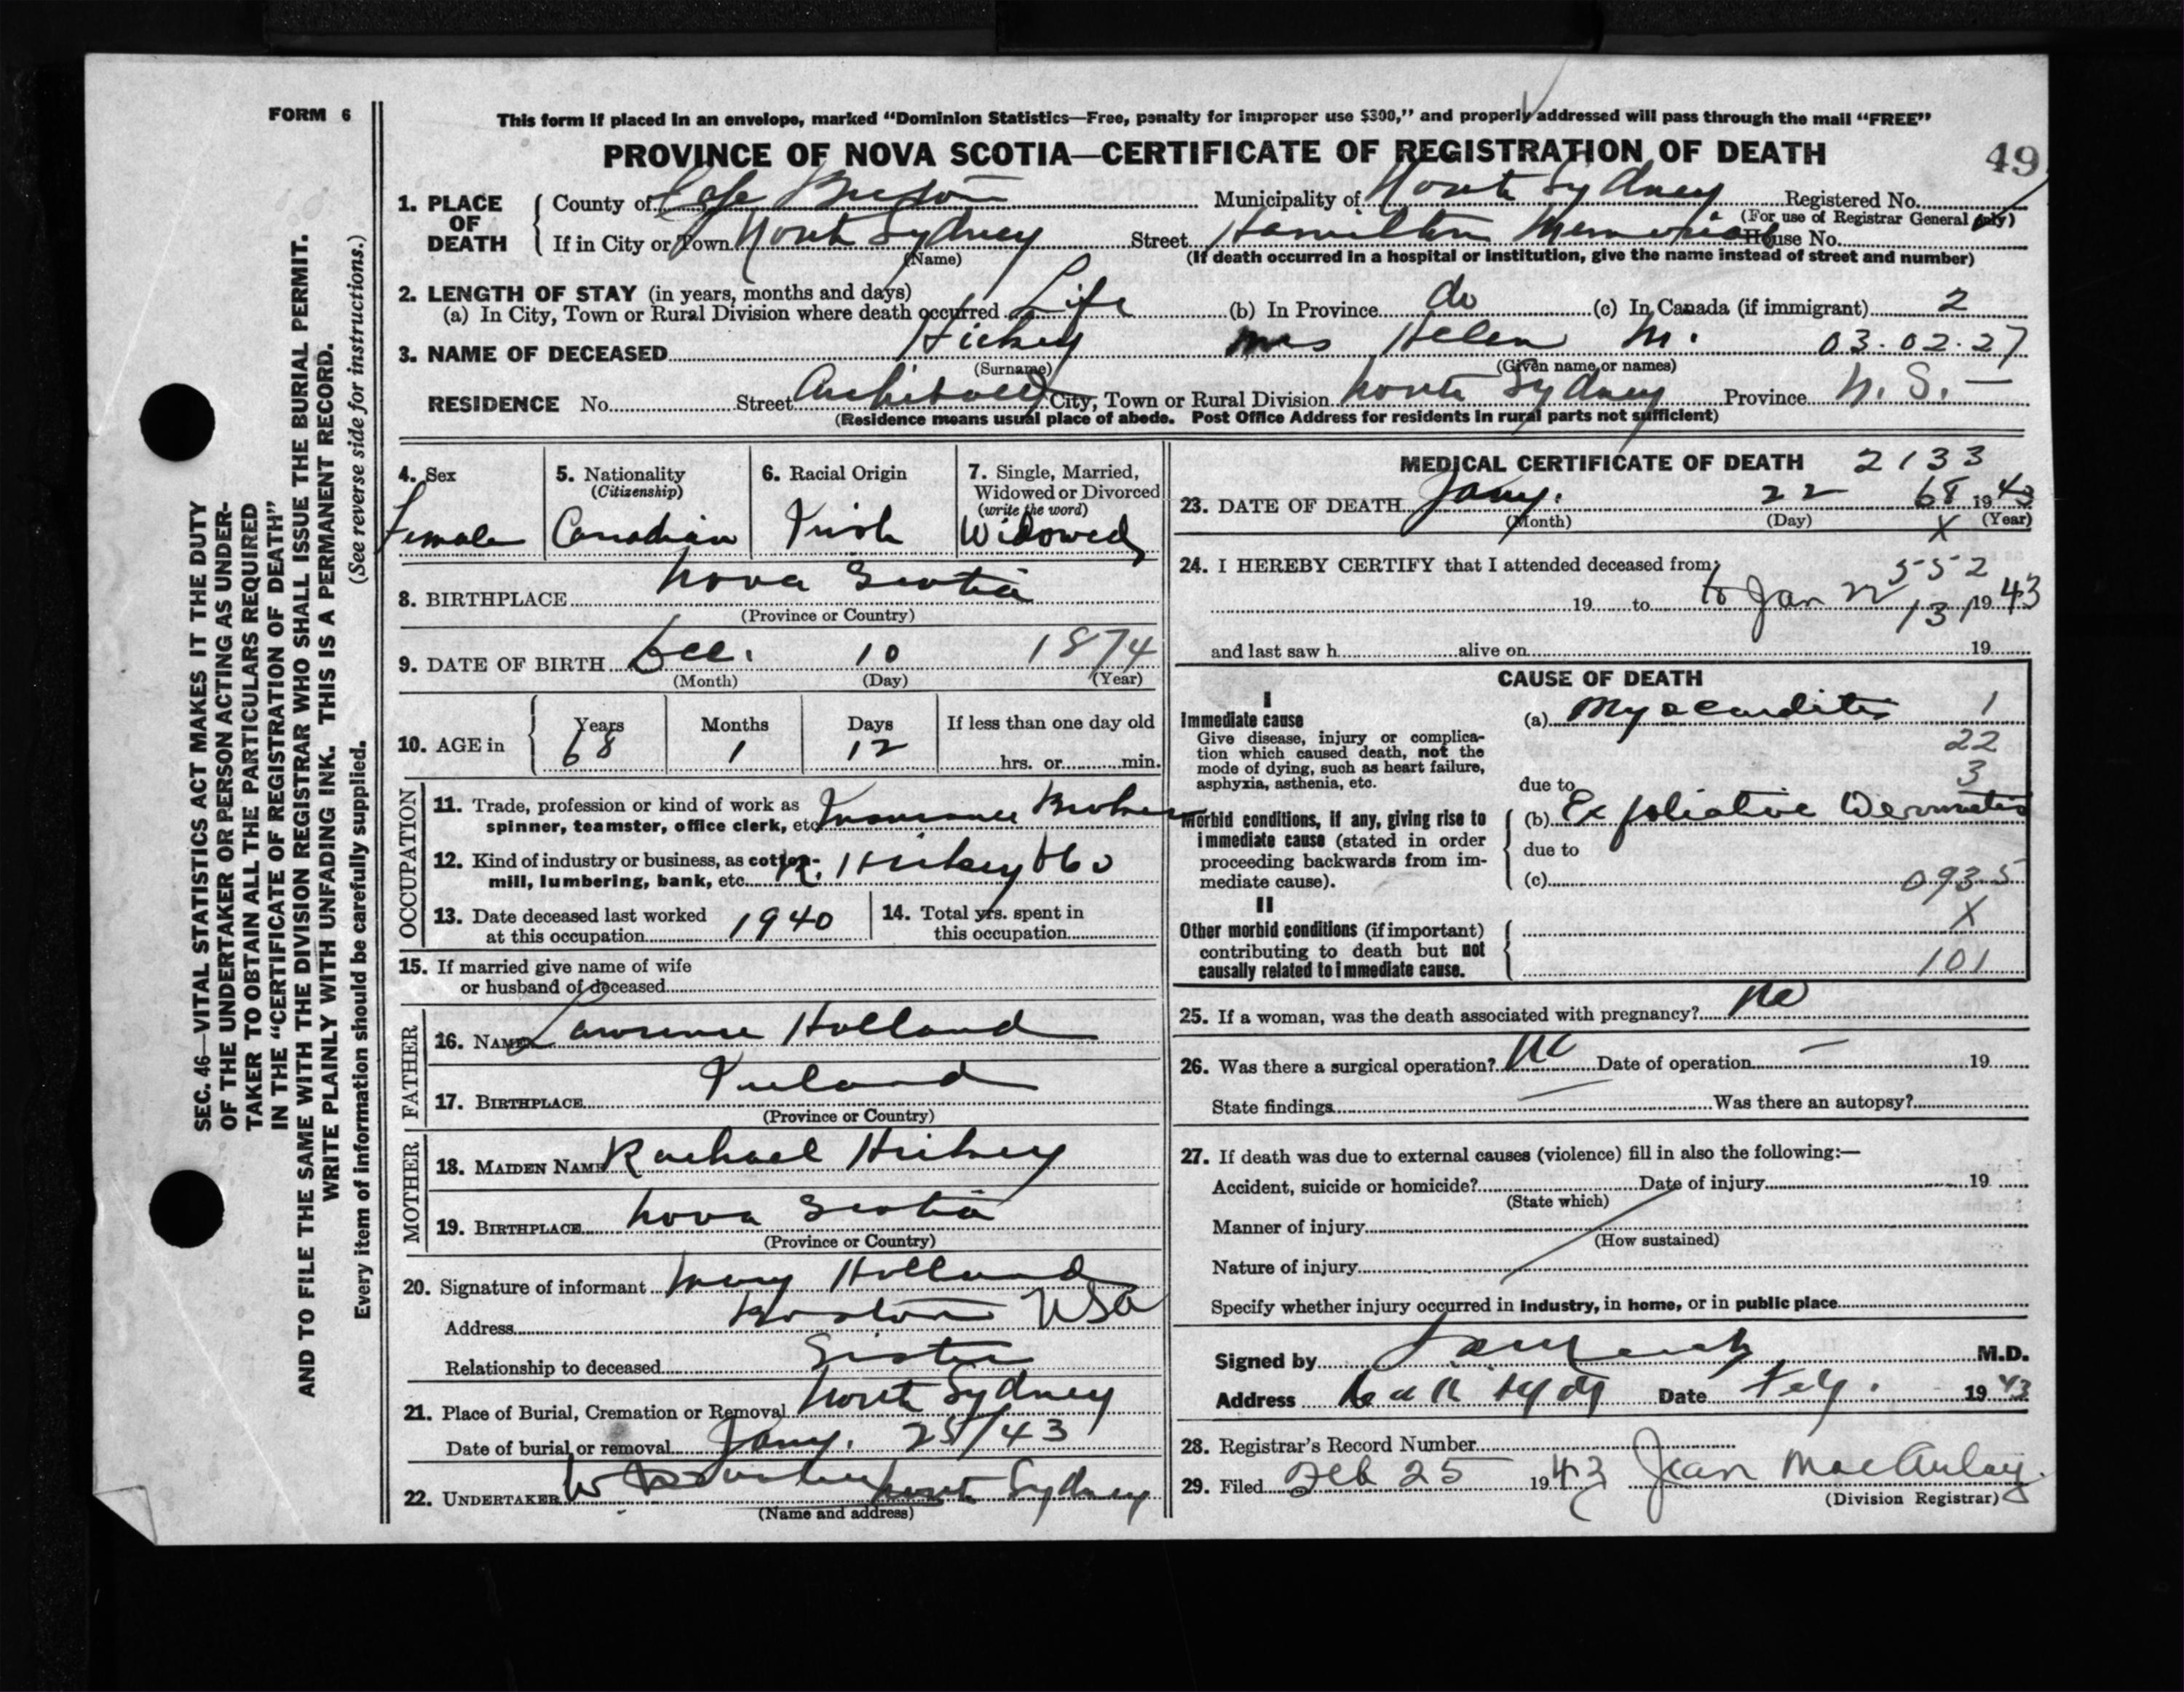 FORM 6
This form if placed in an envelope, marked "Dominion Statistics—Free, penalty for improper use $300," and properly addressed will pass through the mail "FREE"
PROVINCE OF NOVA SCOTIA—CERTIFICATE OF REGISTRATION OF DEATH
49
1. PLACE OF DEATH
County of Cape Breton Municipality of North Sydney Registered No.
(For use of Registrar General only)
If in City or Town North Sydney Street Hamilton Memorial House No.
(Name) (If death occurred in a hospital or institution, give the name instead of street and number)
2. LENGTH OF STAY (in years, months and days)
(a) In City, Town or Rural Division where death occurred Life (b) In Province do (c) In Canada (if immigrant) 2
3. NAME OF DECEASED Hickey Mrs Helen M. 03.02.27
(Surname) (Given name or names)
RESIDENCE No. Street Archibald City, Town or Rural Division North Sydney Province N. S. —
(Residence means usual place of abode. Post Office Address for residents in rural parts not sufficient)
SEC. 46—VITAL STATISTICS ACT MAKES IT THE DUTY
OF THE UNDERTAKER OR PERSON ACTING AS UNDER-
TAKER TO OBTAIN ALL THE PARTICULARS REQUIRED
IN THE "CERTIFICATE OF REGISTRATION OF DEATH"
AND TO FILE THE SAME WITH THE DIVISION REGISTRAR WHO SHALL ISSUE THE BURIAL PERMIT.
WRITE PLAINLY WITH UNFADING INK. THIS IS A PERMANENT RECORD.
Every item of information should be carefully supplied. (See reverse side for instructions.)
4. Sex
Female
5. Nationality
(Citizenship)
Canadian
6. Racial Origin
Irish
7. Single, Married,
Widowed or Divorced
(write the word)
Widowed
8. BIRTHPLACE Nova Scotia
(Province or Country)
9. DATE OF BIRTH Dec. 10 1874
(Month) (Day) (Year)
10. AGE in
Years Months Days If less than one day old
68 1 12 hrs. or min.
OCCUPATION
11. Trade, profession or kind of work as
spinner, teamster, office clerk, etc. Insurance Broker
12. Kind of industry or business, as cotton-
mill, lumbering, bank, etc. R. Hickey & Co
13. Date deceased last worked
at this occupation 1940
14. Total yrs. spent in
this occupation
15. If married give name of wife
or husband of deceased
FATHER
16. NAME Lawrence Holland
17. BIRTHPLACE Ireland
(Province or Country)
MOTHER
18. MAIDEN NAME Rachael Hickey
19. BIRTHPLACE Nova Scotia
(Province or Country)
20. Signature of informant Mary Holland
Address Boston USA
Relationship to deceased Sister
21. Place of Burial, Cremation or Removal North Sydney
Date of burial or removal Jany. 25/43
22. UNDERTAKER W North Sydney
(Name and address)
MEDICAL CERTIFICATE OF DEATH 2133
23. DATE OF DEATH Jany. 22 68 1943
(Month) (Day) X (Year)
24. I HEREBY CERTIFY that I attended deceased from:
552
19 to to Jan 22 1943
131
and last saw h alive on 19
CAUSE OF DEATH
I
Immediate cause
Give disease, injury or complica-
tion which caused death, not the
mode of dying, such as heart failure,
asphyxia, asthenia, etc.
(a) Myocarditis 1
22
3
due to
Morbid conditions, if any, giving rise to
immediate cause (stated in order
proceeding backwards from im-
mediate cause).
(b) Exfoliative Dermatitis
due to
(c) 0935
II
Other morbid conditions (if important)
contributing to death but not
causally related to immediate cause.
X
101
25. If a woman, was the death associated with pregnancy? No
26. Was there a surgical operation? No Date of operation — 19
State findings — Was there an autopsy?
27. If death was due to external causes (violence) fill in also the following:—
Accident, suicide or homicide? Date of injury 19
(State which)
Manner of injury
(How sustained)
Nature of injury
Specify whether injury occurred in industry, in home, or in public place
Signed by M.D.
Address Date 1943
28. Registrar's Record Number
29. Filed Feb 25 1943 Jean MacAulay
(Division Registrar)